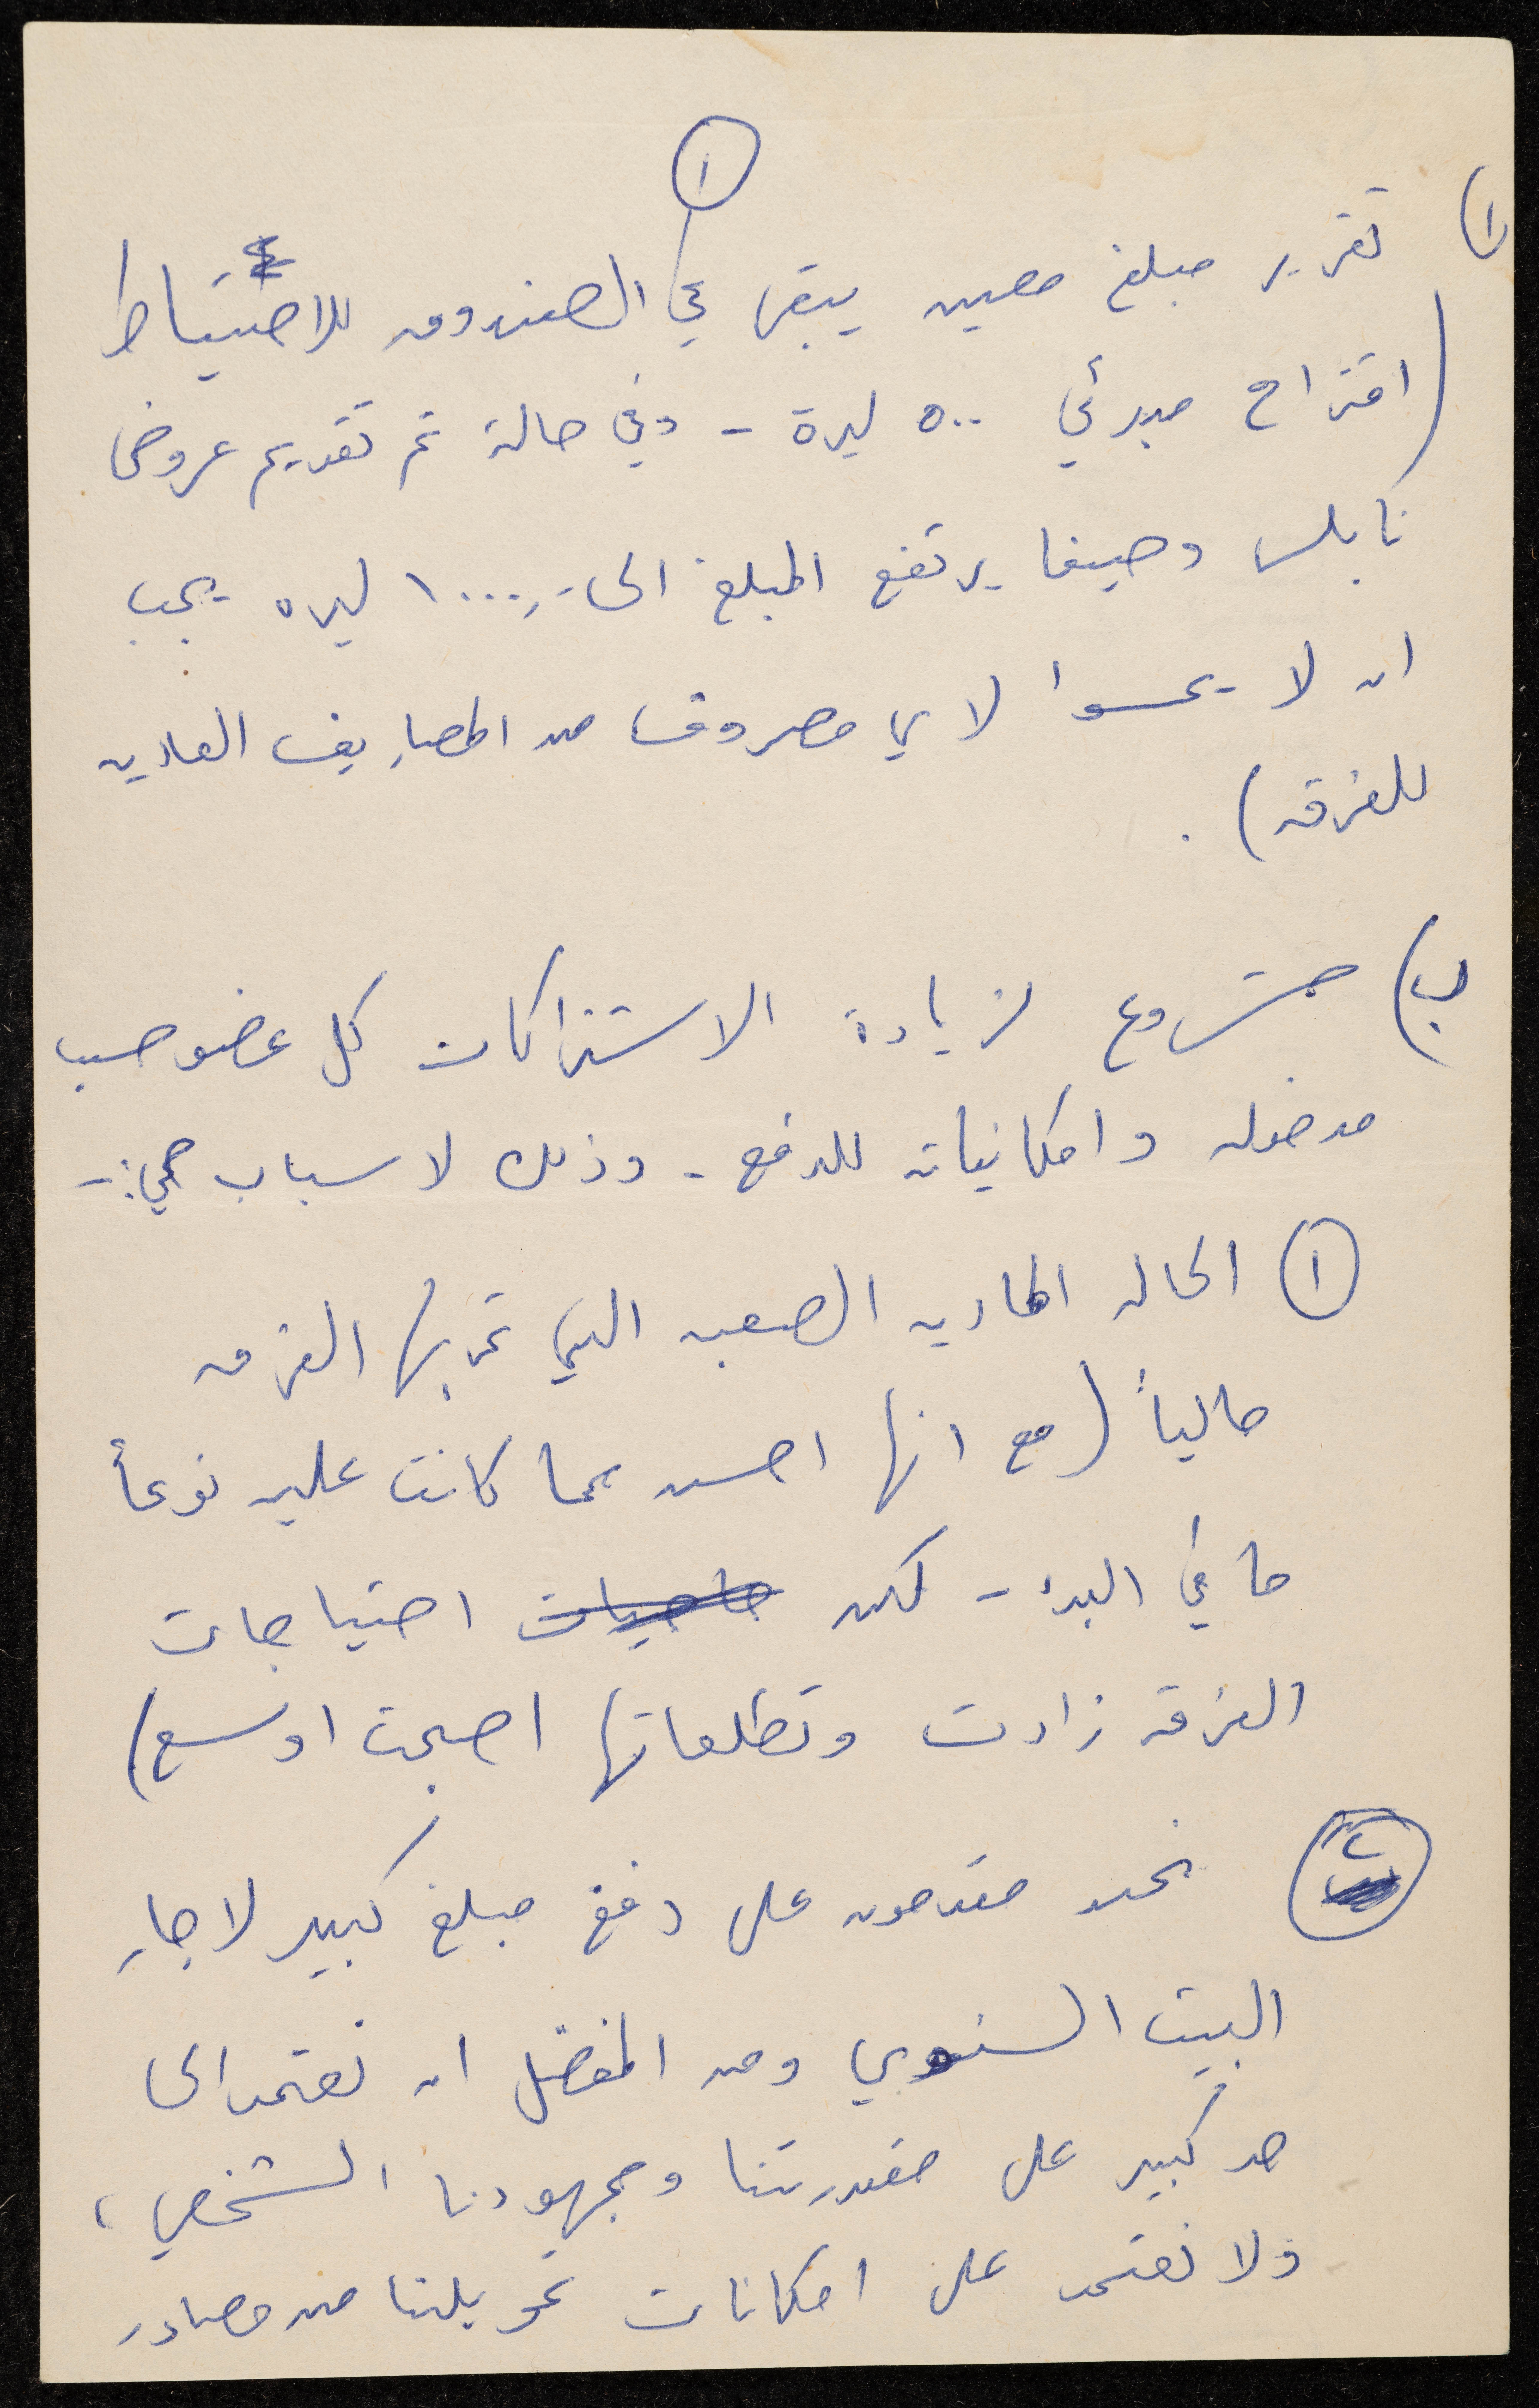 ١
١) تقرير مبلغ معين يبقى في الصندوق للاحتياط
(اقتراح مبدئي ٥٠٠ ليرة - وفي حالة تم تقديم عروض
نابلس وحيفا يرتفع المبلغ الى ١٠٠٠ ليره يجب
ان لا يمسوا لاي مصروف من المصاريف العاديه
للفرقه).
ب) مشروع لزيادة الاشتراكات كل عضو حسب
مدخوله وامكانياته للدفع - وذلك لاسباب هي:-
١ الحاله الماديه الصعبه التي تمر بها الفرقه
حالياً (مع انها احسن مما كانت عليه نوعاً
ما في البدء - لكن حاجيات احتياجات
الفرقه زادت وتطلعاتها اصبحت اوسع)
٢ نحن مقدمون على دفع مبلغ كبير لاجار
البيت السنوي ومن المفضل ان نعتمد الى
حد كبير على مقدرتنا ومجهودنا الشخصي،
ولا نعتمد على امكانات تمويلنا من مصادر